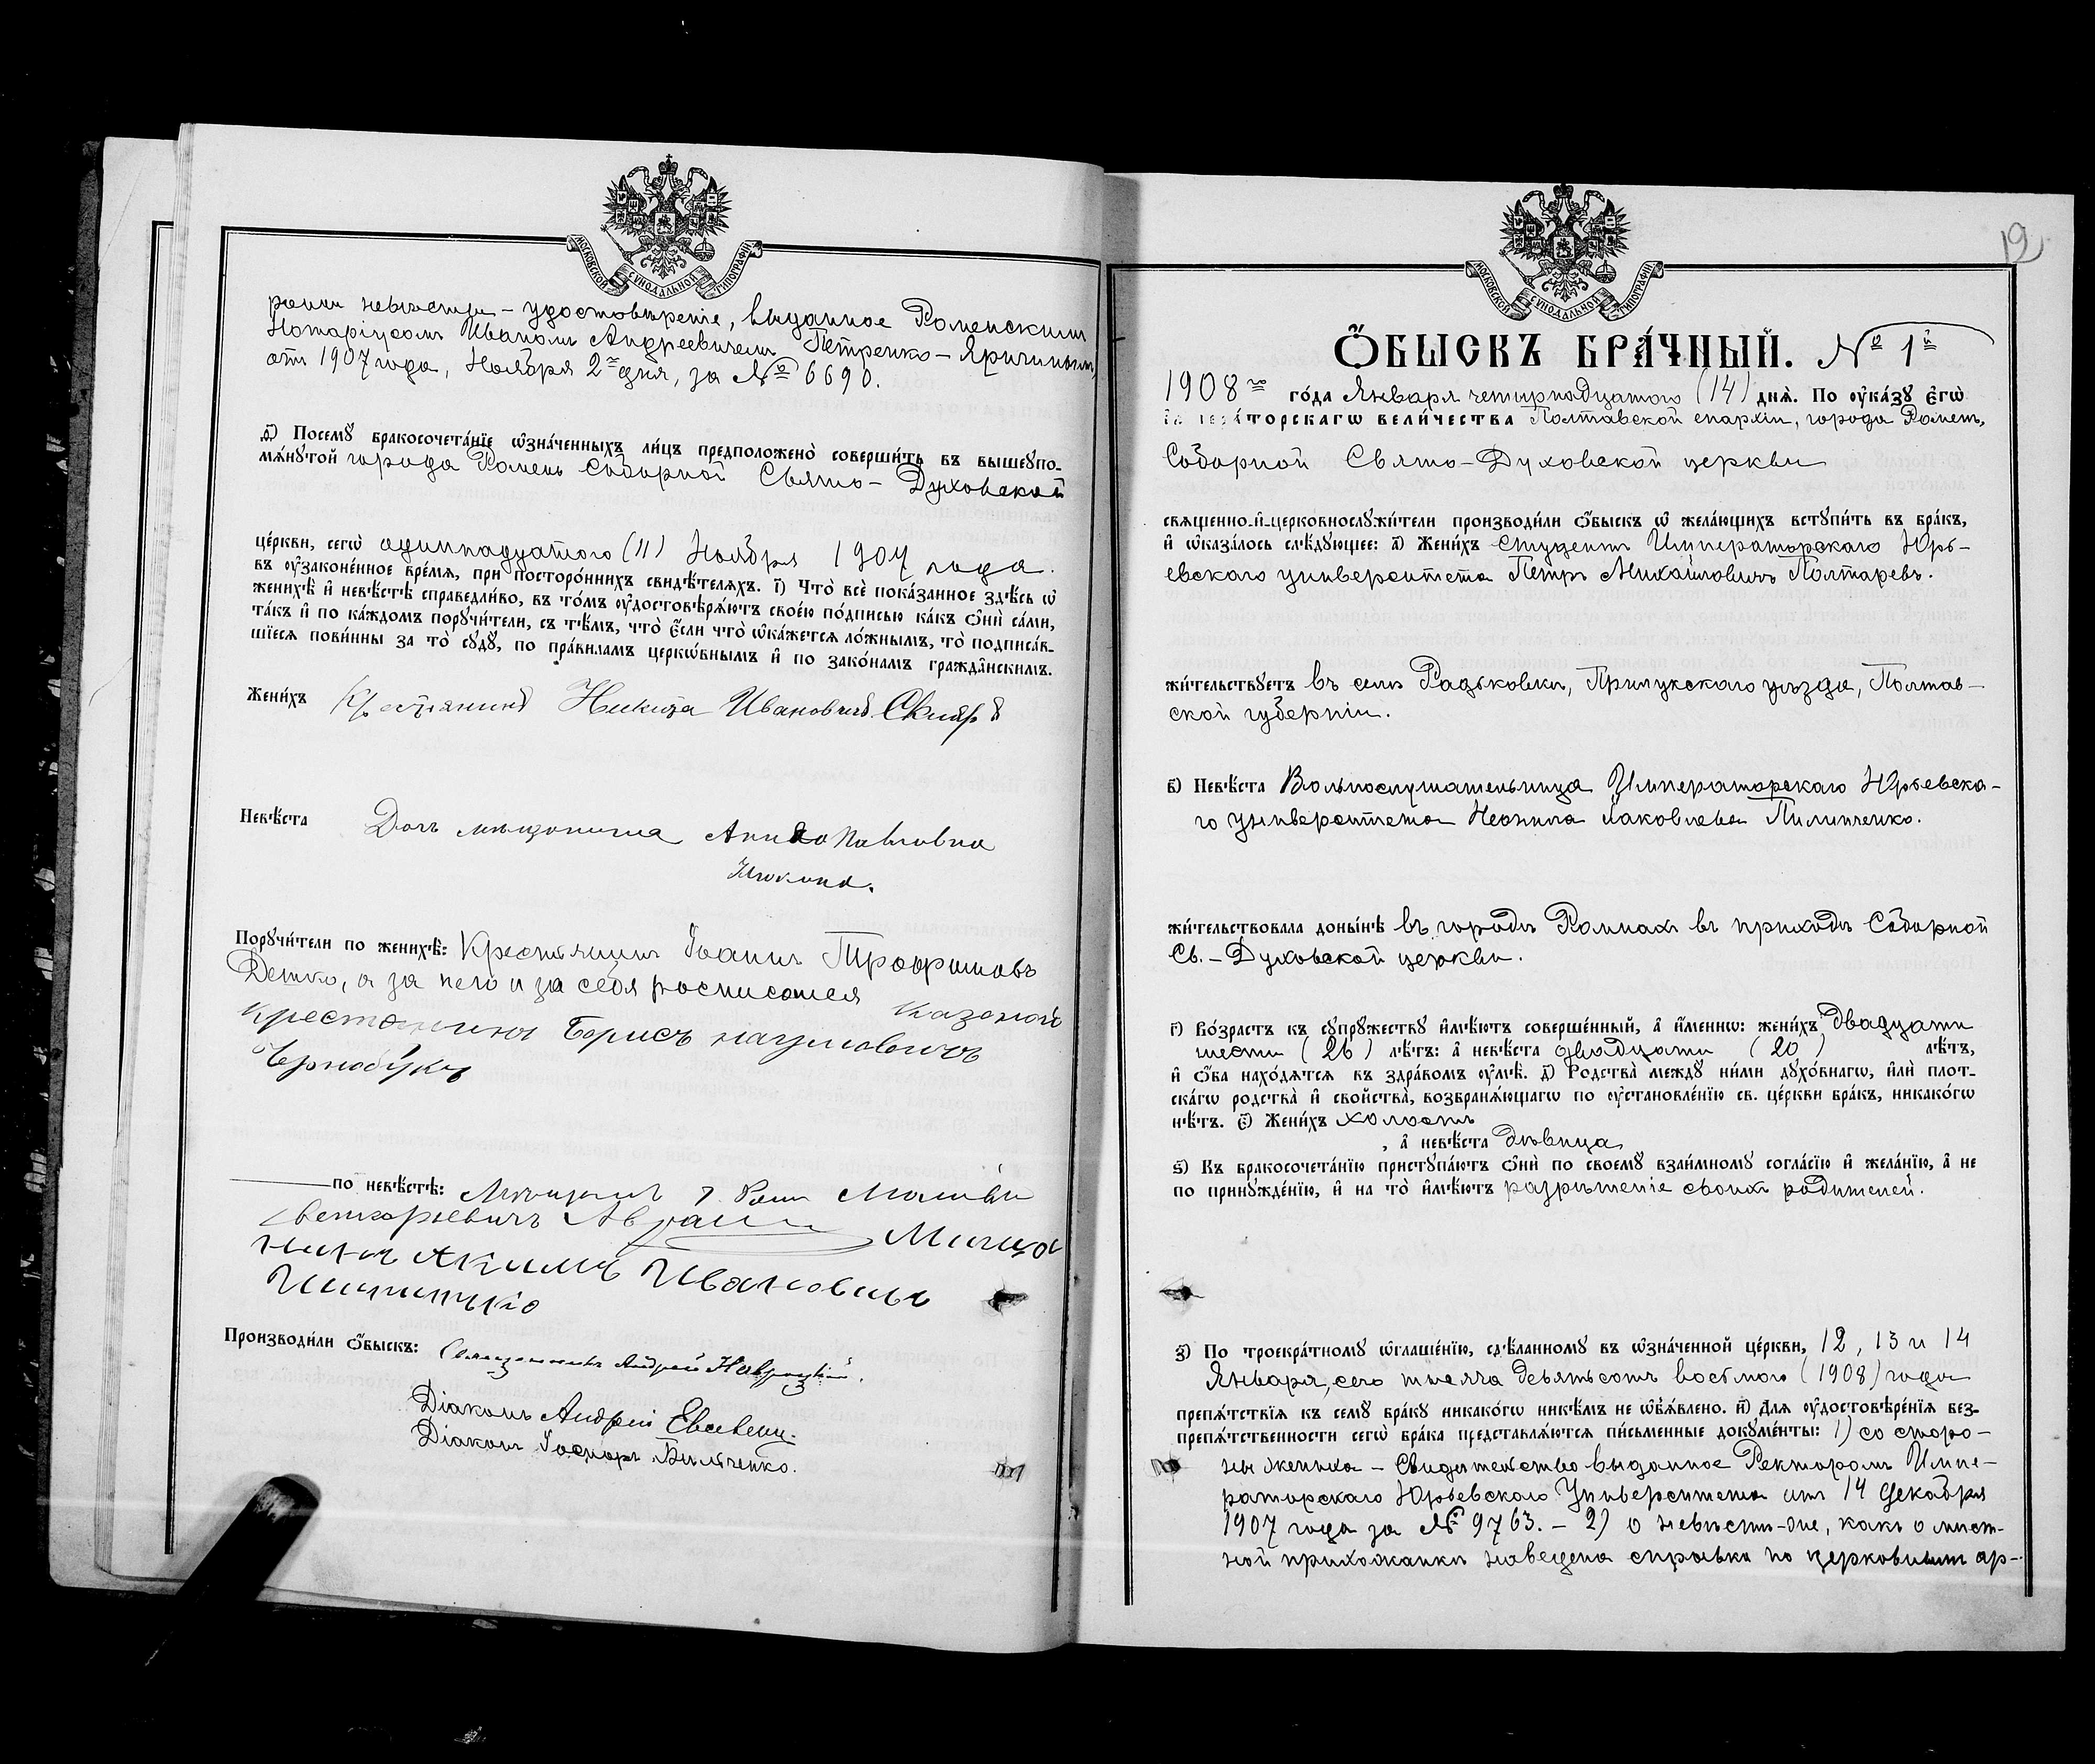 МОСКОВСКОЙ СѴНОДАЛЬНОЙ ТИПОГРАФІИ
роны невѣсты – удостовѣреніе, выданное Роменскимъ
Нотаріусомъ Иваномъ Андреевичемъ Петренко – Яричинымъ,
отъ 1907 года, Ноября 2го дня, за № 6690.
д҃) Посемꙋ̀ бракосочета́нїе ѡ҆зна́ченныхъ ли́цъ предположено̀ соверши́ть въ вышеꙋпо-
мѧ́нꙋтой города Роменъ Соборной Свято – Духовской
це́ркви, сегѡ̀ одиннадцатого (11) Ноября 1907 года.
въ ᲂу҆зако́ненное вре́мѧ, при посторо́ннихъ свидѣ́телѧхъ. і҃) Что̀ всѐ пока́занное здѣ́сь ѡ҆
женихѣ̀ и҆ невѣ́стѣ справедли́во, въ то́мъ ᲂу҆достовѣрѧ́ютъ свое́ю по́дписью ка́къ ѻ҆нѝ са́ми,
та́къ и҆ по ка́ждомъ порꙋчи́тели, съ тѣ́мъ, что̀ є҆́сли что̀ ѡ҆ка́жетсѧ ло́жнымъ, то̀ подписа́в-
шїесѧ пови́нны за то̀ сꙋдꙋ̀, по пра́виламъ церкѡ́внымъ и҆ по зако́намъ гражда́нскимъ.
Жени́хъ Крестьянинъ Никита Ивановичъ Скляръ
Невѣ́ста Дочь мещанина Анна Павловна
Порꙋчи́тели по женихѣ̀: Крестьянинъ Іоаннъ Трофимовъ
Детко, а за него и за себя росписался казакъ
крестьянинъ Борисъ наумовичъ
Чернобукъ
по невѣ́стѣ: Мѣщанинъ г. Ромнъ Матвѣй
Авраменко Мѣща
нинъ Акимъ Ивановичъ
Производи́ли ѻ҆́быскъ: Священникъ Андрей Навроцкій.
Діаконъ Андрей Евсевскій.
Діаконъ Іосифъ Бильченко.
19
МОСКОВСКОЙ СѴНОДАЛЬНОЙ ТИПОГРАФІИ
Ѻ҆́БЫСКЪ БРА́ЧНЫЙ. № 1й
1908го го́да Января четырнадцатого (14) днѧ̀. По ᲂу҆ка́зꙋ Є҆гѡ̀
И҆мпера́торскагѡ вели́чества Полтавской епархіи, города Роменъ,
Соборной Свято – Духовской церкви
свѧщенно-и҆-церковнослꙋжи́тели производи́ли ѻ҆́быскъ ѡ҆ жела́ющихъ встꙋпи́ть въ бра́къ,
и҆ ѡ҆каза́лось слѣ́дꙋющее: а҃) Жени́хъ студентъ Императорскаго Юрь-
евскаго университета Петръ Михайловичъ Полтаревъ.
жи́тельствꙋетъ въ селѣ Радьковкѣ, Прилукскаго уѣзда, Полтав-
ской губерніи.
в҃) Невѣ́ста Вольнослушательница Императорскаго Юрьевска-
го университета Неонила Яковлева Пилипченко.
жи́тельствовала доны́нѣ въ городѣ Ромнахъ въ приходѣ Соборной
Св. – Духовской церкви.
г҃) Во́зрастъ къ сꙋпрꙋ́жествꙋ и҆мѣ́ютъ соверше́нный, а҆ и҆́меннѡ: жени́хъ двадцати
шести (26) лѣ́тъ: а҆ невѣ́ста двадцати (20) лѣ́тъ,
и҆ ѻ҆́ба нахо́дѧтсѧ въ здра́вомъ ᲂу҆мѣ̀. д҃) Родства̀ междꙋ̀ ни́ми дꙋхо́внагѡ, и҆лѝ плот-
ска́гѡ родства̀ и҆ сво́йства, возбранѧ́ющагѡ по ᲂу҆становле́нїю св. це́ркви бра́къ, никако́гѡ
нѣ́тъ. є҃) Жени́хъ холостъ
, а҆ невѣ́ста дѣвица
ѕ҃) Къ бракосочета́нїю пристꙋпа́ютъ ѻ҆нѝ по своемꙋ̀ взаи́мномꙋ согла́сїю и҆ жела́нїю, а҆ не
по принꙋжде́нїю, и҆ на то̀ и҆мѣ́ютъ разрѣшеніе своихъ родителей.
з҃) По троекра́тномꙋ ѡ҆глаше́нїю, сдѣ́ланномꙋ въ ѡ҆зна́ченной це́ркви, 12, 13 и 14
Января, сего тысяча девятьсотъ восьмого (1908) года
препѧ́тствїѧ къ семꙋ̀ бра́кꙋ никако́гѡ никѣ́мъ не ѡ҆б̾ѧ́влено. и҃) Длѧ ᲂу҆достовѣре́нїѧ без-
препѧ́тственности сегѡ̀ бра́ка представлѧ́ютсѧ пи́сьменные докꙋме́нты: 1) со сторо-
ны жениха – Свидѣтельство выданное Ректоромъ Импе-
раторскаго Юрьевскаго Университета отъ 14 Декабря
1907 года за № 9763. – 2) о невѣстѣ-же, какъ о мѣст-
ной прихожанкѣ наведена справка по церковнымъ ар-